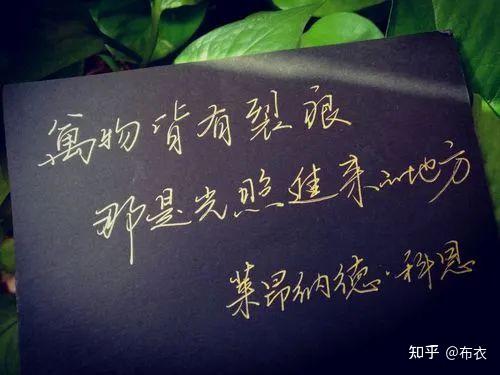 萬物皆有裂痕
那是光照進来的地方
莱昂纳德·科恩
知乎 @布衣